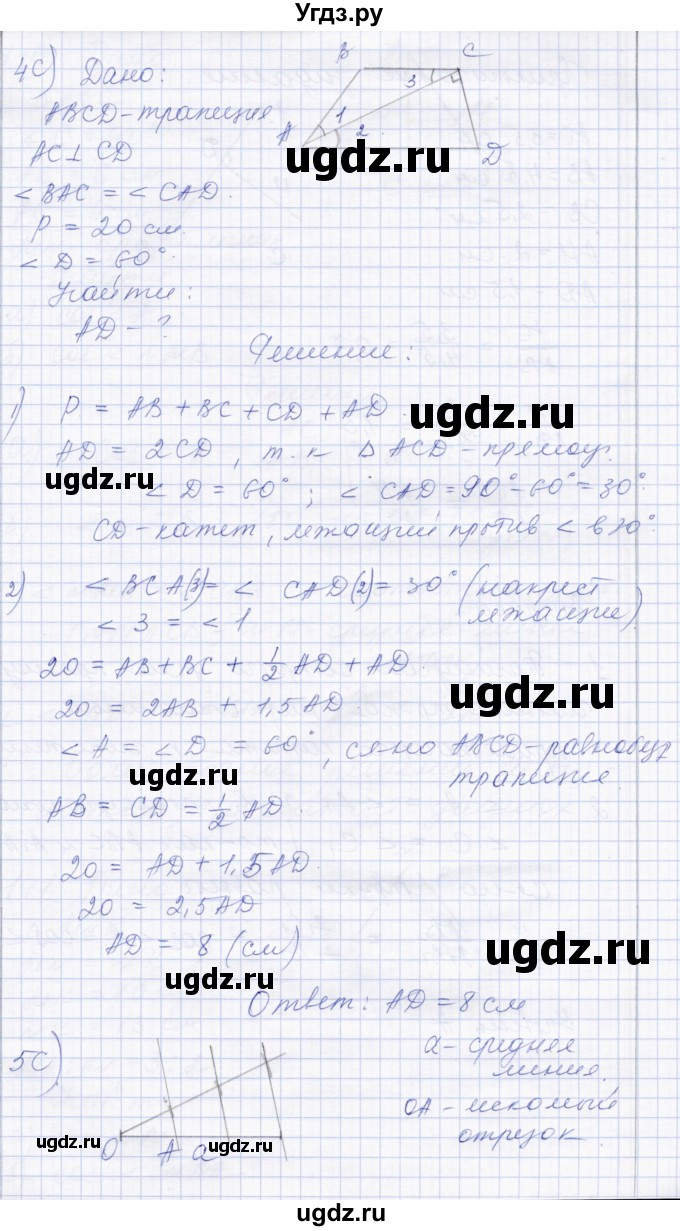 Угдз.ру
4С) Дано:
ABCD - трапеция
AC ⊥ CD
∠ BAC = ∠ CAD.
P = 20 см.
∠ D = 60°.
Найти:
AD - ?
B C
3
1
A 2
D
ugdz.ru
Решение:
1) P = AB + BC + CD + AD.
ugdz.ru
AD = 2CD, т.к △ ACD - прямоуг.
ugdz.ru
∠ D = 60°; ∠ CAD = 90° - 60° = 30°
CD - катет, лежащий против ∠ в 30°.
2) ∠ BCA(3) = ∠ CAD(2) = 30° (накрест
лежащие).
∠ 3 = ∠ 1
20 = AB + BC + 1/2 AD + AD.
ugdz.ru
20 = 2AB + 1,5AD.
∠ A = ∠ D = 60°, ABCD - равнобед
трапеция
ugdz.ru
AB = CD = 1/2 AD.
20 = AD + 1,5AD.
ugdz.ru
20 = 2,5AD
AD = 8 (см)
ugdz.ru
ugdz.ru
Ответ: AD = 8 см.
5С)
a - средняя
линия.
OA - искомый
отрезок.
O A a
ugdz.ru
ugdz.ru
ugdz.ru
ugdz.ru